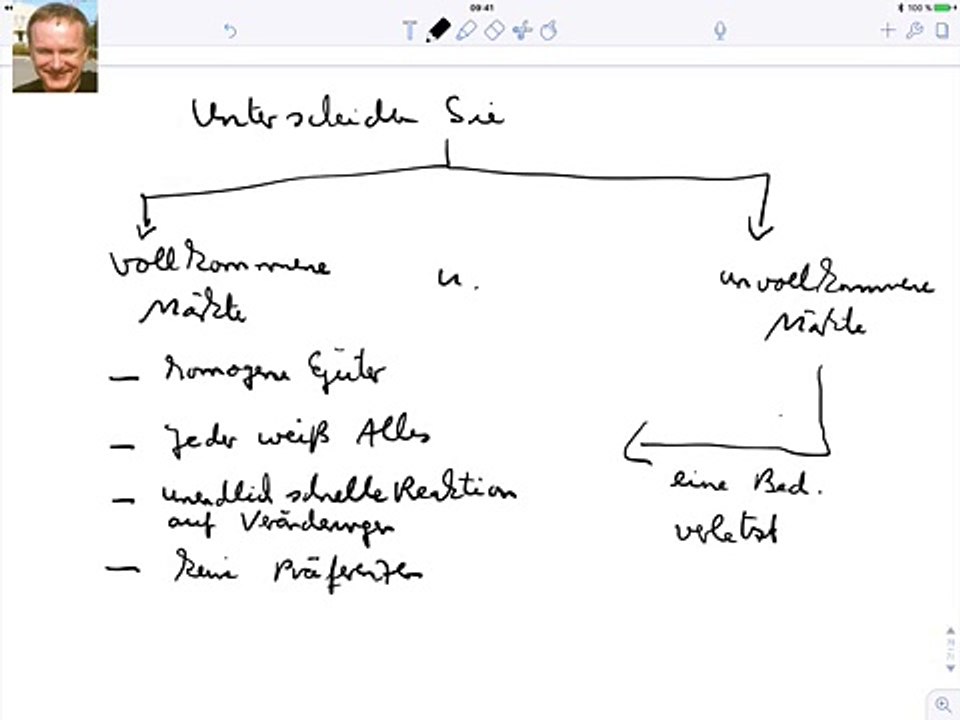 09:41
100 %
Unterscheiden Sie
vollkommene
Märkte
u.
unvollkommene
Märkte
– homogene Güter
– Jeder weiß Alles
– unendlich schnelle Reaktion
auf Veränderungen
– keine Präferenzen
eine Bed.
verletzt